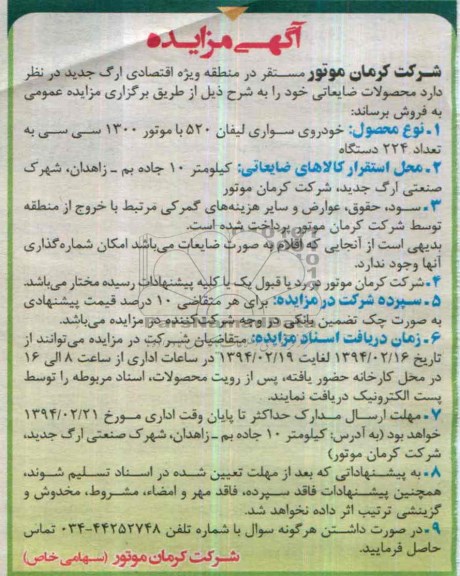 آگهی مزایده
شرکت کرمان موتور مستقر در منطقه ویژه اقتصادی ارگ جدید در نظر
دارد محصولات ضایعاتی خود را به شرح ذیل از طریق برگزاری مزایده عمومی
به فروش برساند:
۱ـ نوع محصول: خودروی سواری لیفان ۵۲۰ با موتور ۱۳۰۰ سی سی به
تعداد ۲۲۴ دستگاه
۲ـ محل استقرار کالاهای ضایعاتی: کیلومتر ۱۰ جاده بم ـ زاهدان، شهرک
صنعتی ارگ جدید، شرکت کرمان موتور
۳ـ سود، حقوق، عوارض و سایر هزینه‌های گمرکی مرتبط با خروج از منطقه
توسط شرکت کرمان موتور پرداخت شده است.
بدیهی است از آنجایی که اقلام به صورت ضایعات می‌باشد امکان شماره‌گذاری
آنها وجود ندارد.
۴ـ شرکت کرمان موتور در رد یا قبول یک یا کلیه پیشنهادات رسیده مختار می‌باشد.
۵ـ سپرده شرکت در مزایده: برای هر متقاضی ۱۰ درصد قیمت پیشنهادی
به صورت چک تضمین بانکی در وجه شرکت‌کننده در مزایده می‌باشد.
۶ـ زمان دریافت اسناد مزایده: متقاضیان شرکت در مزایده می‌توانند از
تاریخ ۱۳۹۴/۰۲/۱۶ لغایت ۱۳۹۴/۰۲/۱۹ در ساعات اداری از ساعت ۸ الی ۱۶
در محل کارخانه حضور یافته، پس از رویت محصولات، اسناد مربوطه را توسط
پست الکترونیک دریافت نمایند.
۷ـ مهلت ارسال مدارک حداکثر تا پایان وقت اداری مورخ ۱۳۹۴/۰۲/۲۱
خواهد بود (به آدرس: کیلومتر ۱۰ جاده بم ـ زاهدان، شهرک صنعتی ارگ جدید،
شرکت کرمان موتور)
۸ـ به پیشنهاداتی که بعد از مهلت تعیین شده در اسناد تسلیم شوند،
همچنین پیشنهادات فاقد سپرده، فاقد مهر و امضاء، مشروط، مخدوش و
گزینشی ترتیب اثر داده نخواهد شد.
۹ـ در صورت داشتن هرگونه سوال با شماره تلفن ۴۴۲۵۲۷۴۸-۰۳۴ تماس
حاصل فرمایید.
شرکت کرمان موتور (سهامی خاص)